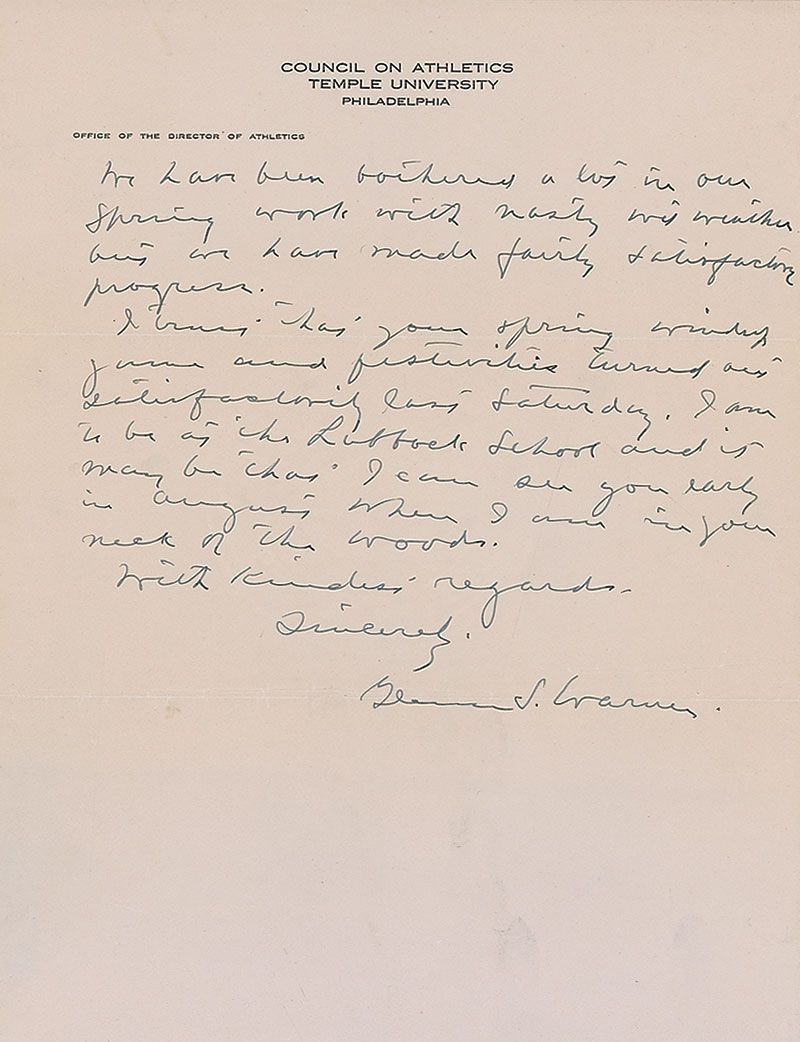 COUNCIL ON ATHLETICS
TEMPLE UNIVERSITY
PHILADELPHIA
OFFICE OF THE DIRECTOR OF ATHLETICS
We have been bothered a lot in our
spring work with nasty wet weather
but we have made fairly satisfactory
progress.
I trust that your spring windup
game and festivities turned out
satisfactorily last Saturday. I am
to be at the Lubbock School and it
may be that I can see you early
in August when I am in your
neck of the woods.
With kindest regards.
Sincerely.
Glenn S. Warner.